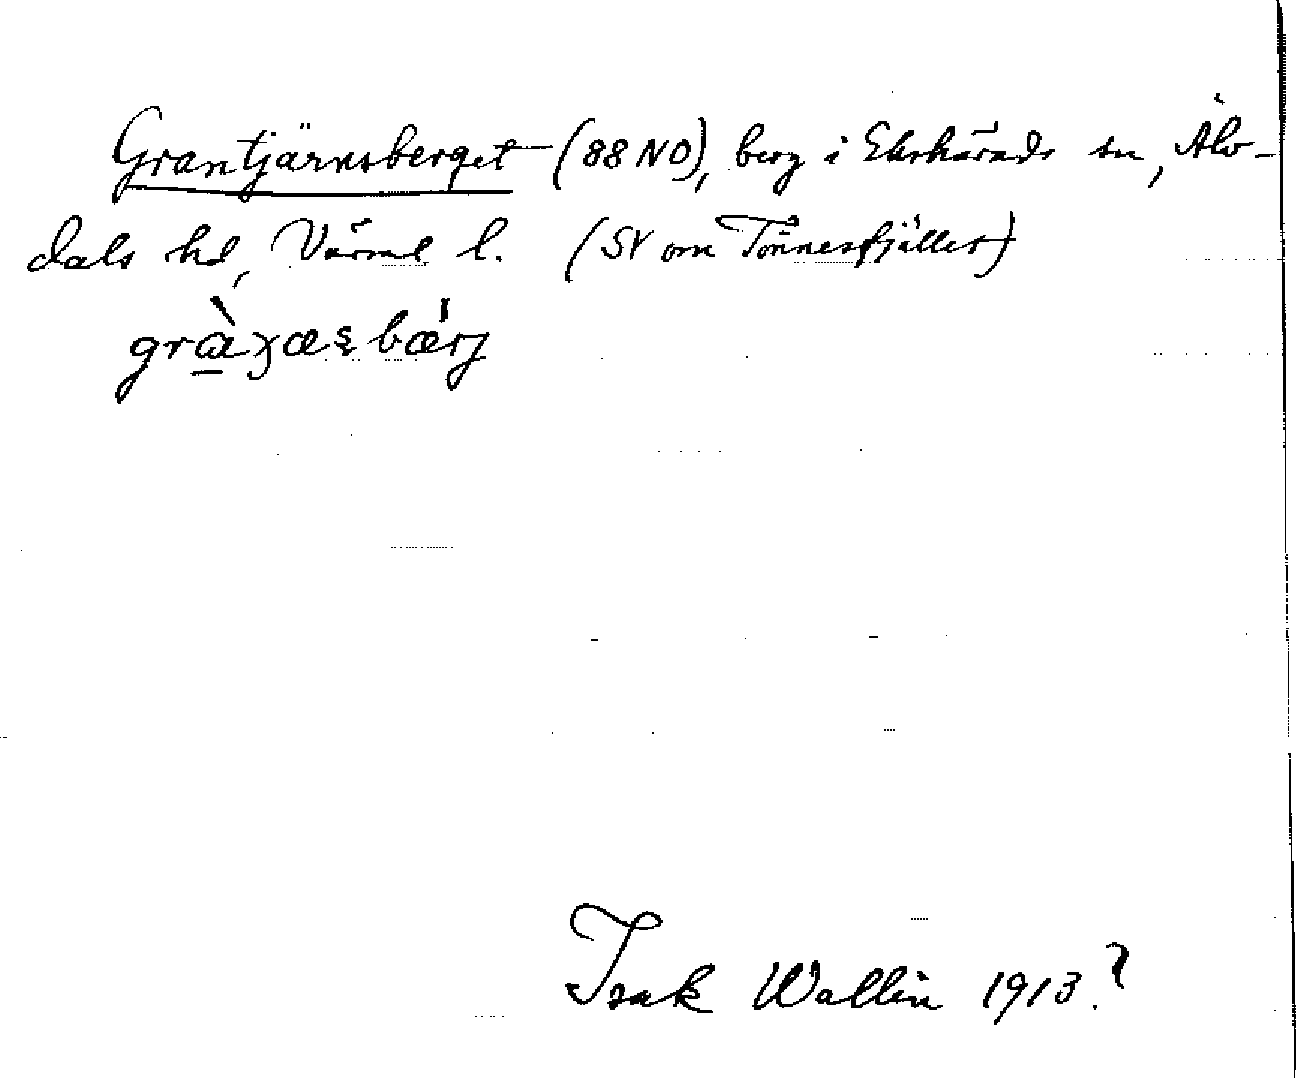 Grantjärnsberget (88 NO), berg i Ekshärads sn, Älv-
dals hd, Värml l. (SV om Tönnesfjället)
Isak Wallin 1913.?